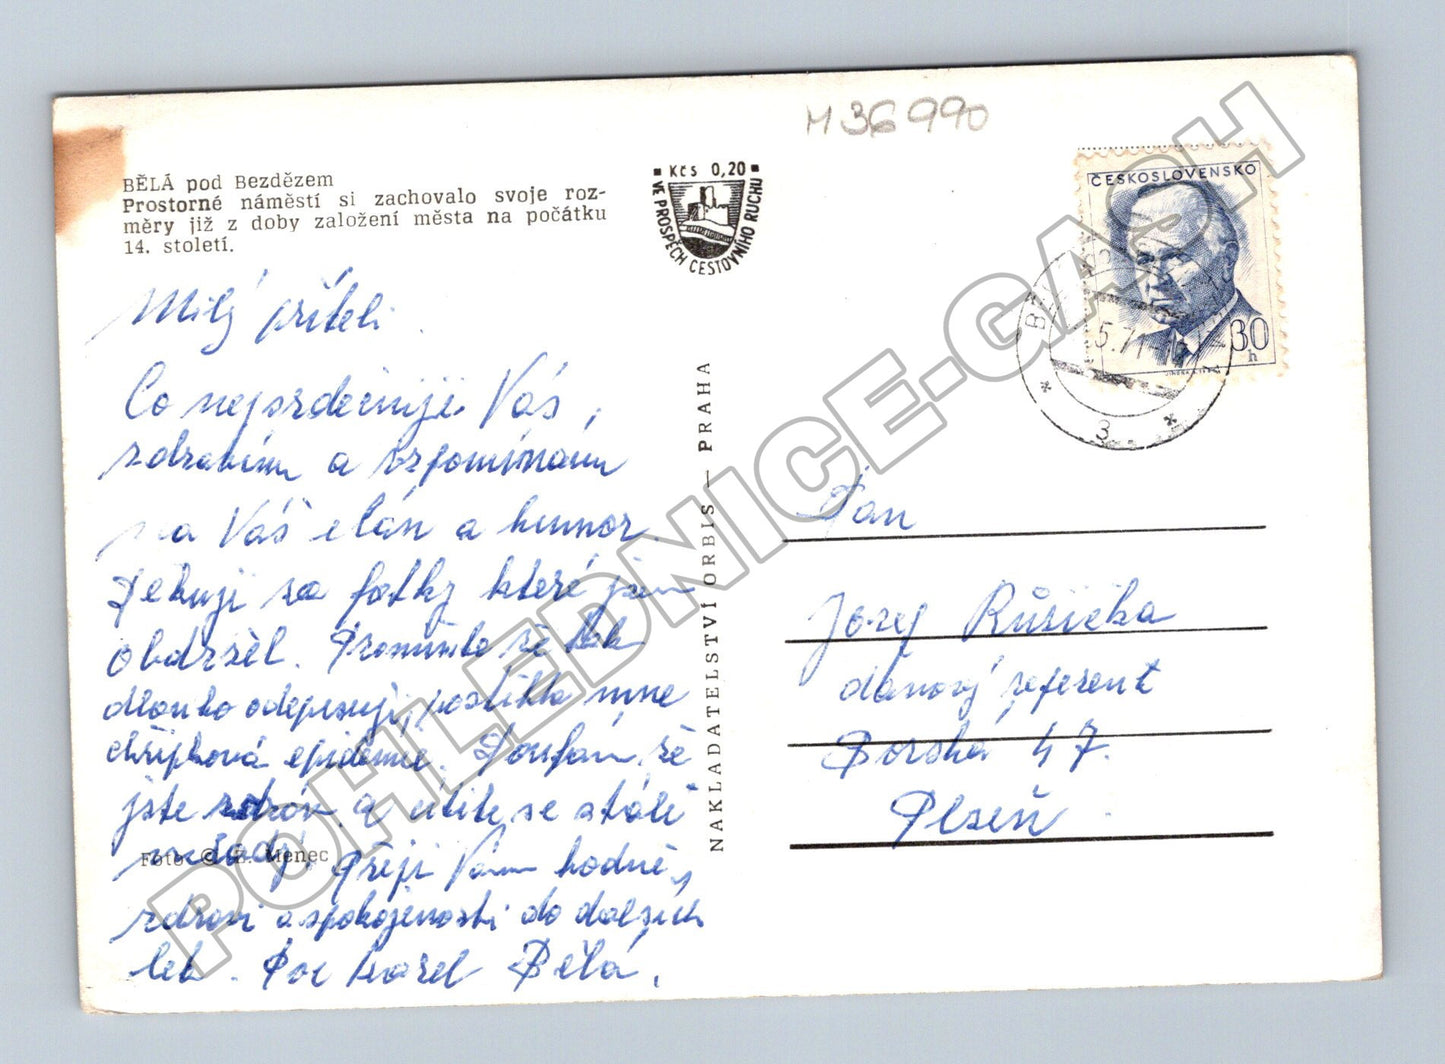 M 36 990
BĚLÁ pod Bezdězem
Prostorné náměstí si zachovalo svoje roz-
měry již z doby založení města na počátku
14. století.
Kčs 0,20
VE PROSPĚCH CESTOVNÍHO RUCHU
ČESKOSLOVENSKO
30
h
5.71-16
3
Milý příteli
Co nejsrdečněji Vás,
zdravím a vzpomínám
na Váš elán a humor
Děkuji za fotky které jsem
obdržel. Promiňte že tak
dlouho odepisuji, postihla mne
chřipková epidemie. Doufám, že
jste zdráv a cítíte se stále
mladý. Přeji Vám hodně
zdraví a spokojenosti do dalších
let. Karel Bělá.
Foto © Menec
NAKLADATELSTVÍ ORBIS — PRAHA
Pan
Josef Růžička
daňový referent
Borská 47.
Plzeň
POHLEDNICE-GASH